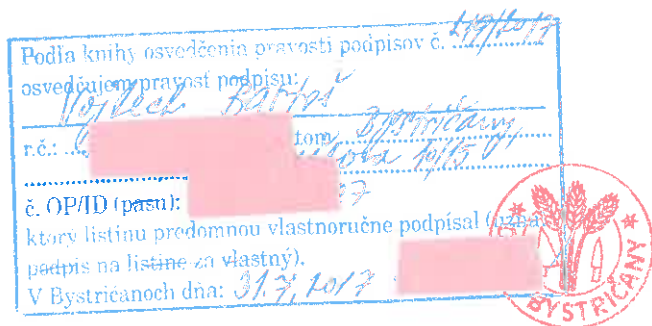 Podľa knihy osvedčenia pravosti podpisov č. 219/2017
osvedčujem pravosť podpisu:
Vojtech
r.č.: tom Bystričany,
10/15
č. OP/ID (pasu):
ktorý listinu predomnou vlastnoručne podpísal (uzna
podpis na listine za vlastný).
V Bystričanoch dňa: 31.7.2017
BYSTRIČANY